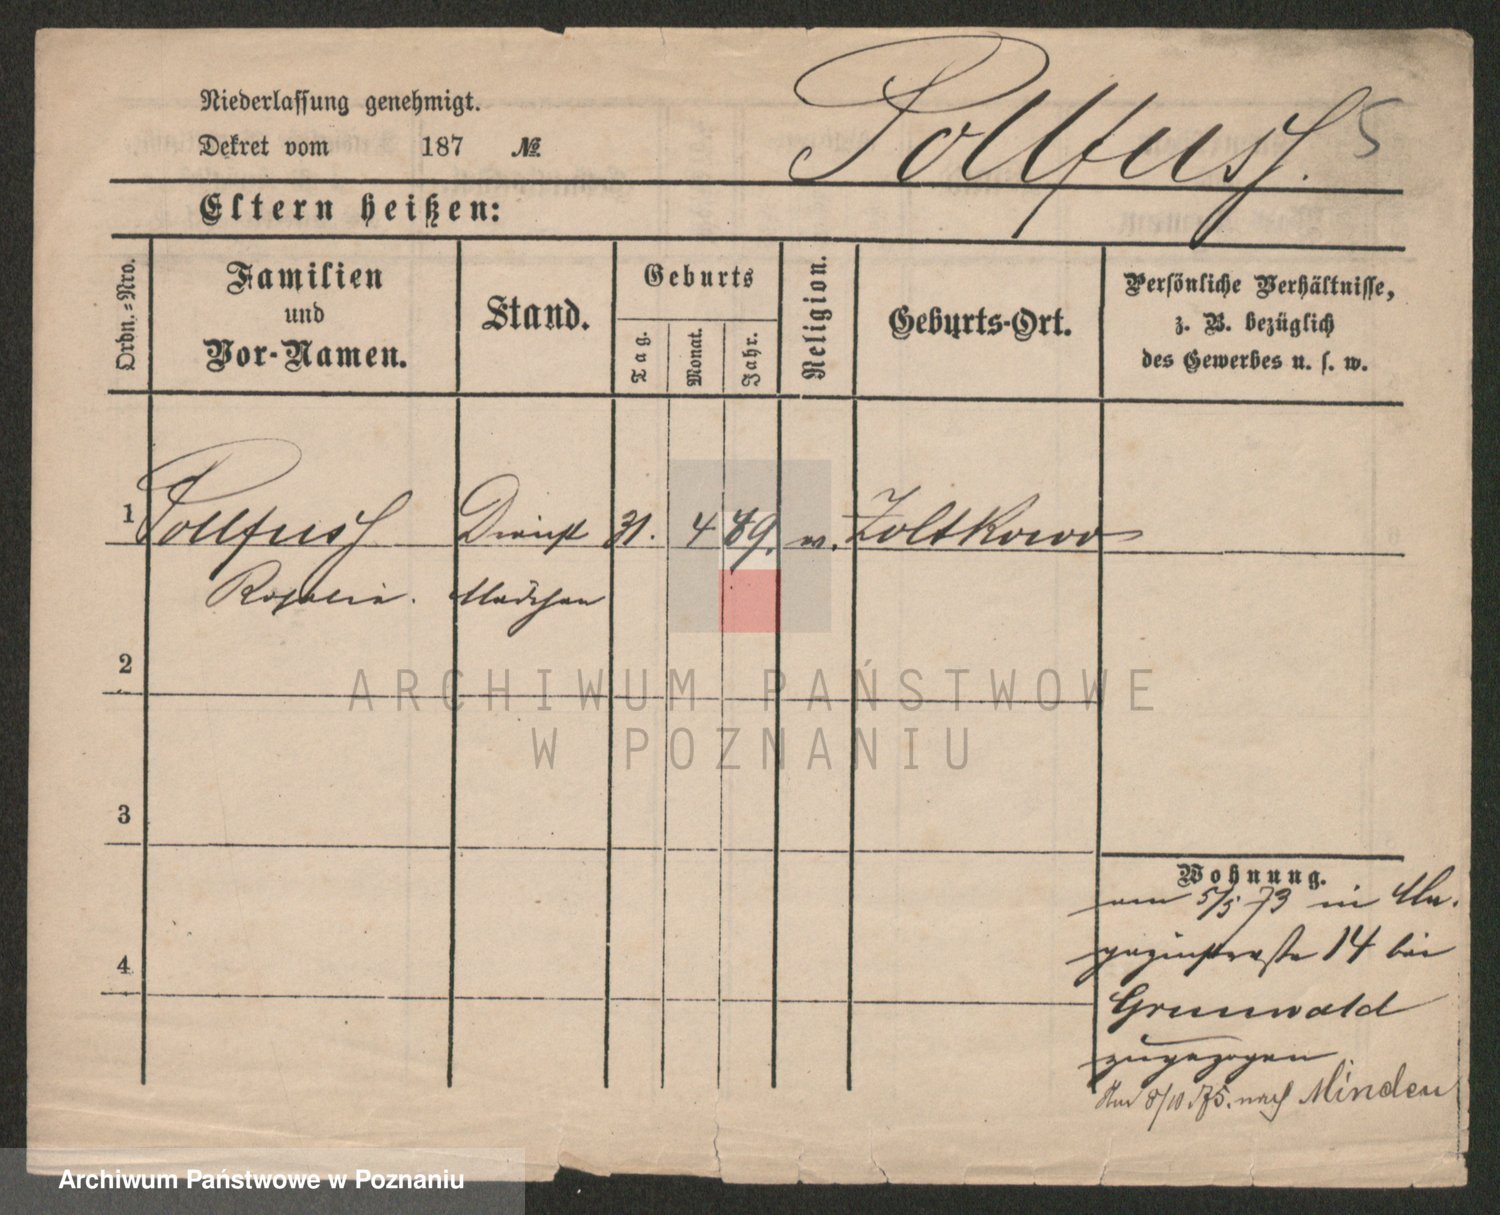 Niederlassung genehmigt.
Dekret vom 187 №
Pollfusch. 5
Eltern heißen:
Ordn.=Nro.
Familien
und
Vor-Namen.
Stand.
Geburts
Tag.
Monat.
Jahr.
Religion.
Geburts-Ort.
Persönliche Verhältnisse,
z. B. bezüglich
des Gewerbes u. s. w.
1 Pollfusch Dienst 31. 4 w. Zoltkowo
Rosalie. Mädchen
2
ARCHIWUM PAŃSTWOWE
W POZNANIU
3
Wohnung.
am 5/5 73 in Ma-
gazinstraße 14 bei
4
Grunwald
zugezogen
8/10. 75. nach Minden
Archiwum Państwowe w Poznaniu